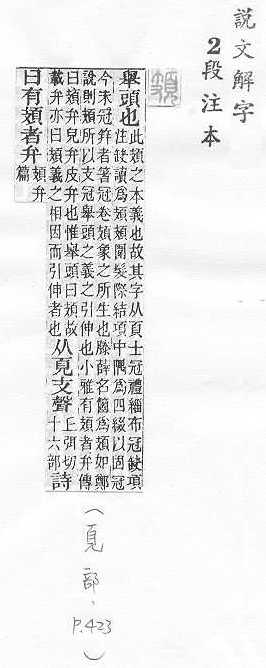 說文解字
2段注本
頍
舉頭也 此頍之本義也故其字从頁士冠禮緇布冠缺項
注缺讀爲頍頍圍髮際結項中隅爲四綴以固冠
今未冠笄者箸冠卷頍象之所生也滕薛名簂爲頍如鄭
說則頍所以支冠舉頭之義之引伸也小雅有頍者弁傳
曰頍弁皃弁皮弁也惟舉頭曰頍故
載弁亦曰頍義之相因而引伸者也 从頁支聲 丘弭切十六部 詩
曰有頍者弁 頍弁篇
（頁部、P.423）